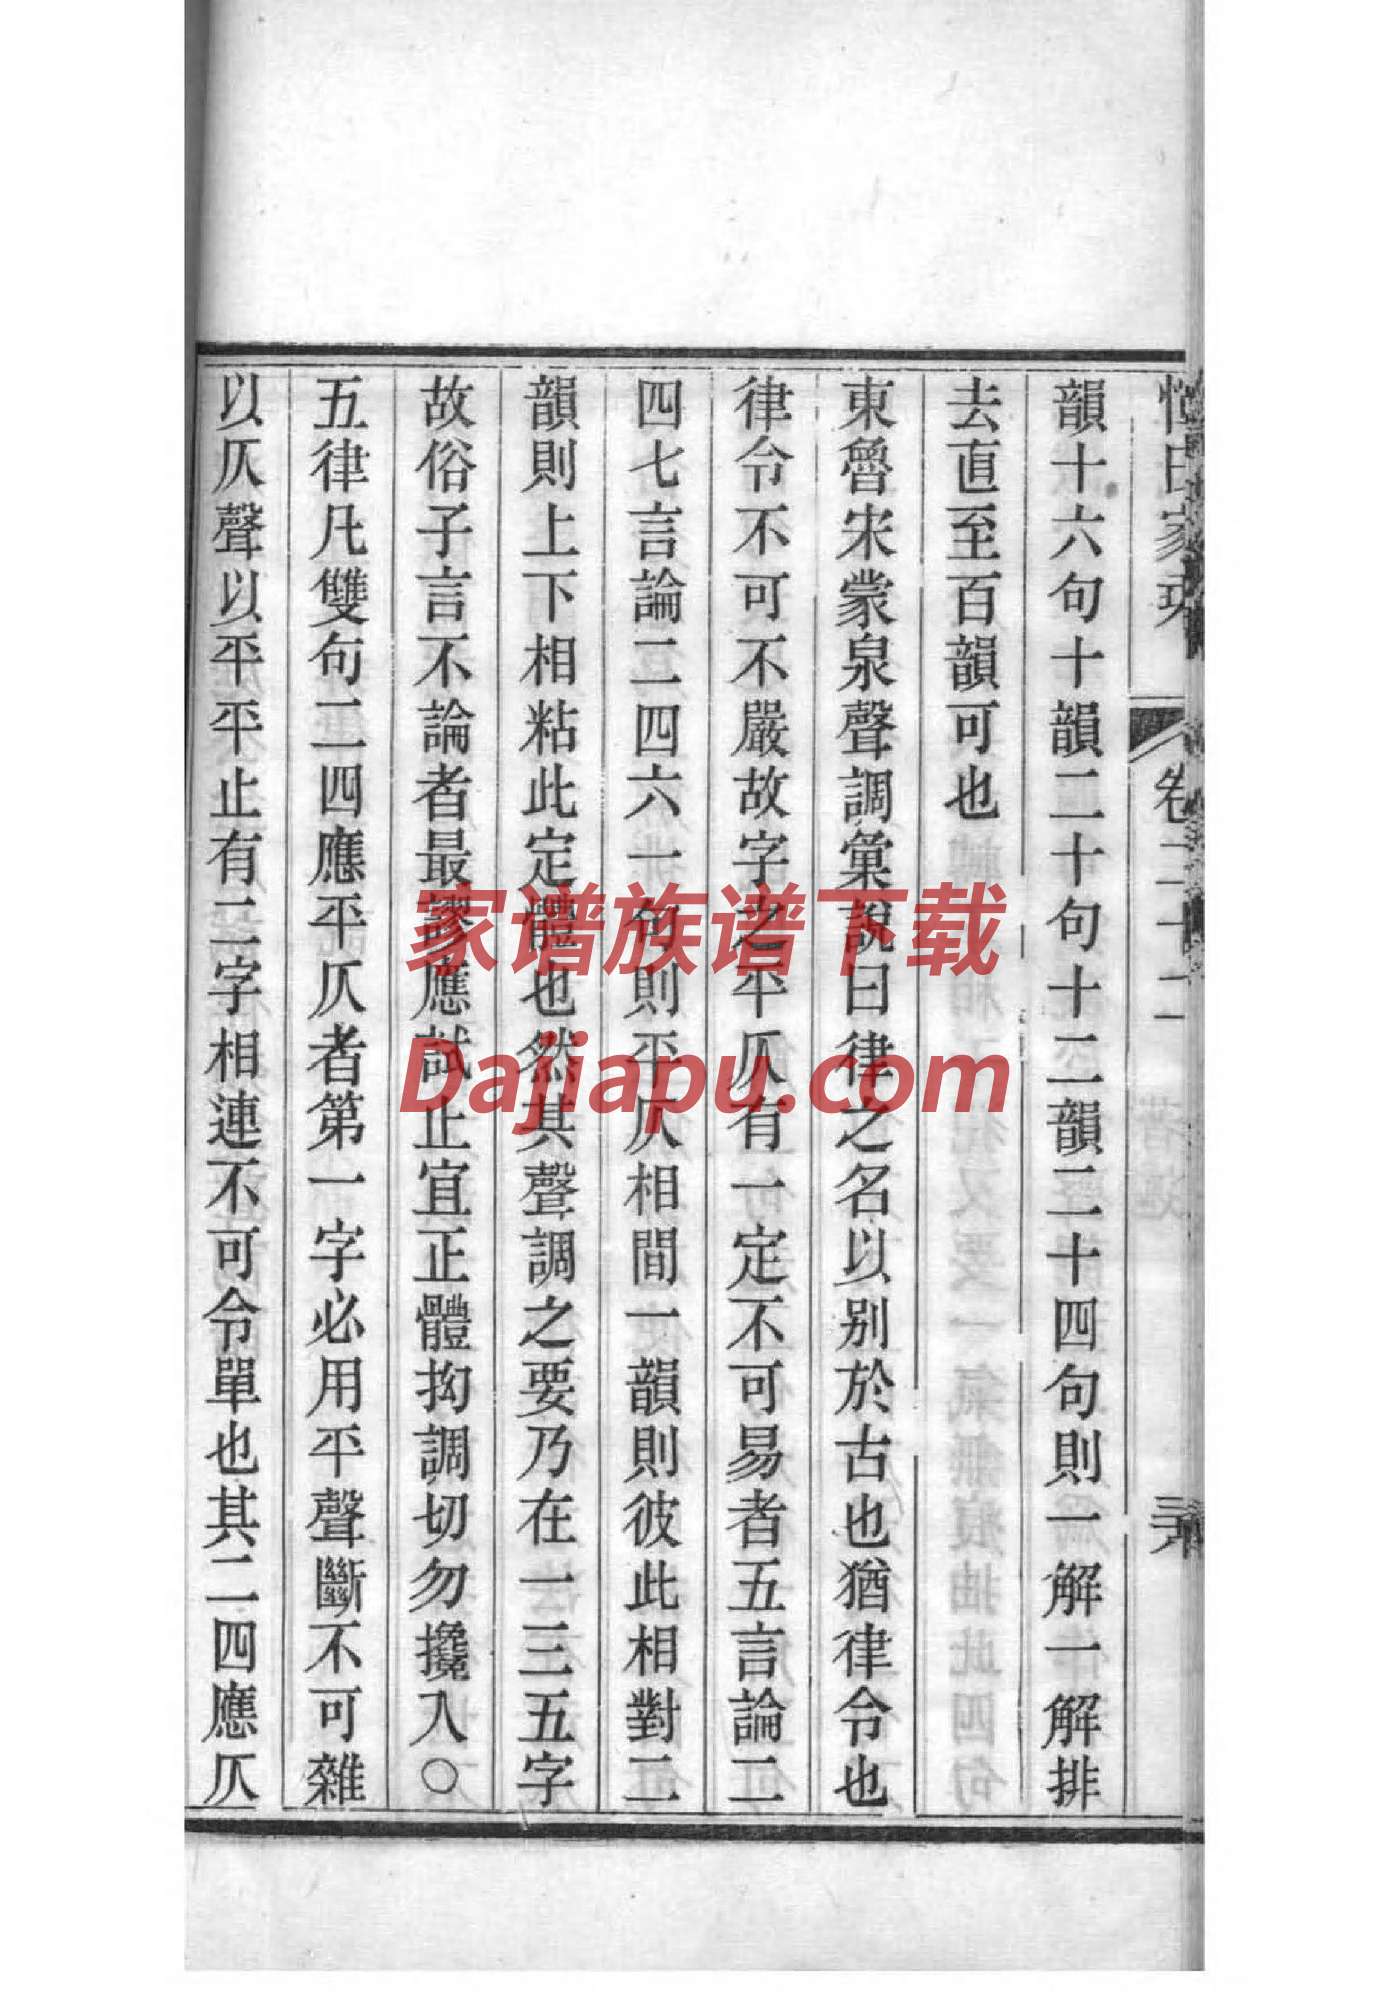 韻十六句十韻二十句十二韻二十四句則一解一解排
去直至百韻可也
東魯宋蒙泉聲調彙說曰律之名以别於古也猶律令也
律令不可不嚴故字之平仄有一定不可易者五言論二
四七言論二四六一句則平仄相間一韻則彼此相對二
韻則上下相粘此定體也然其聲調之要乃在一三五字
故俗子言不論者最謬應試止宜正體拗調切勿攙入○
五律凡雙句二四應平仄者第一字必用平聲斷不可雜
以仄聲以平平止有二字相連不可令單也其二四應仄
卷二十二
家谱族谱下载
Dajiapu.com